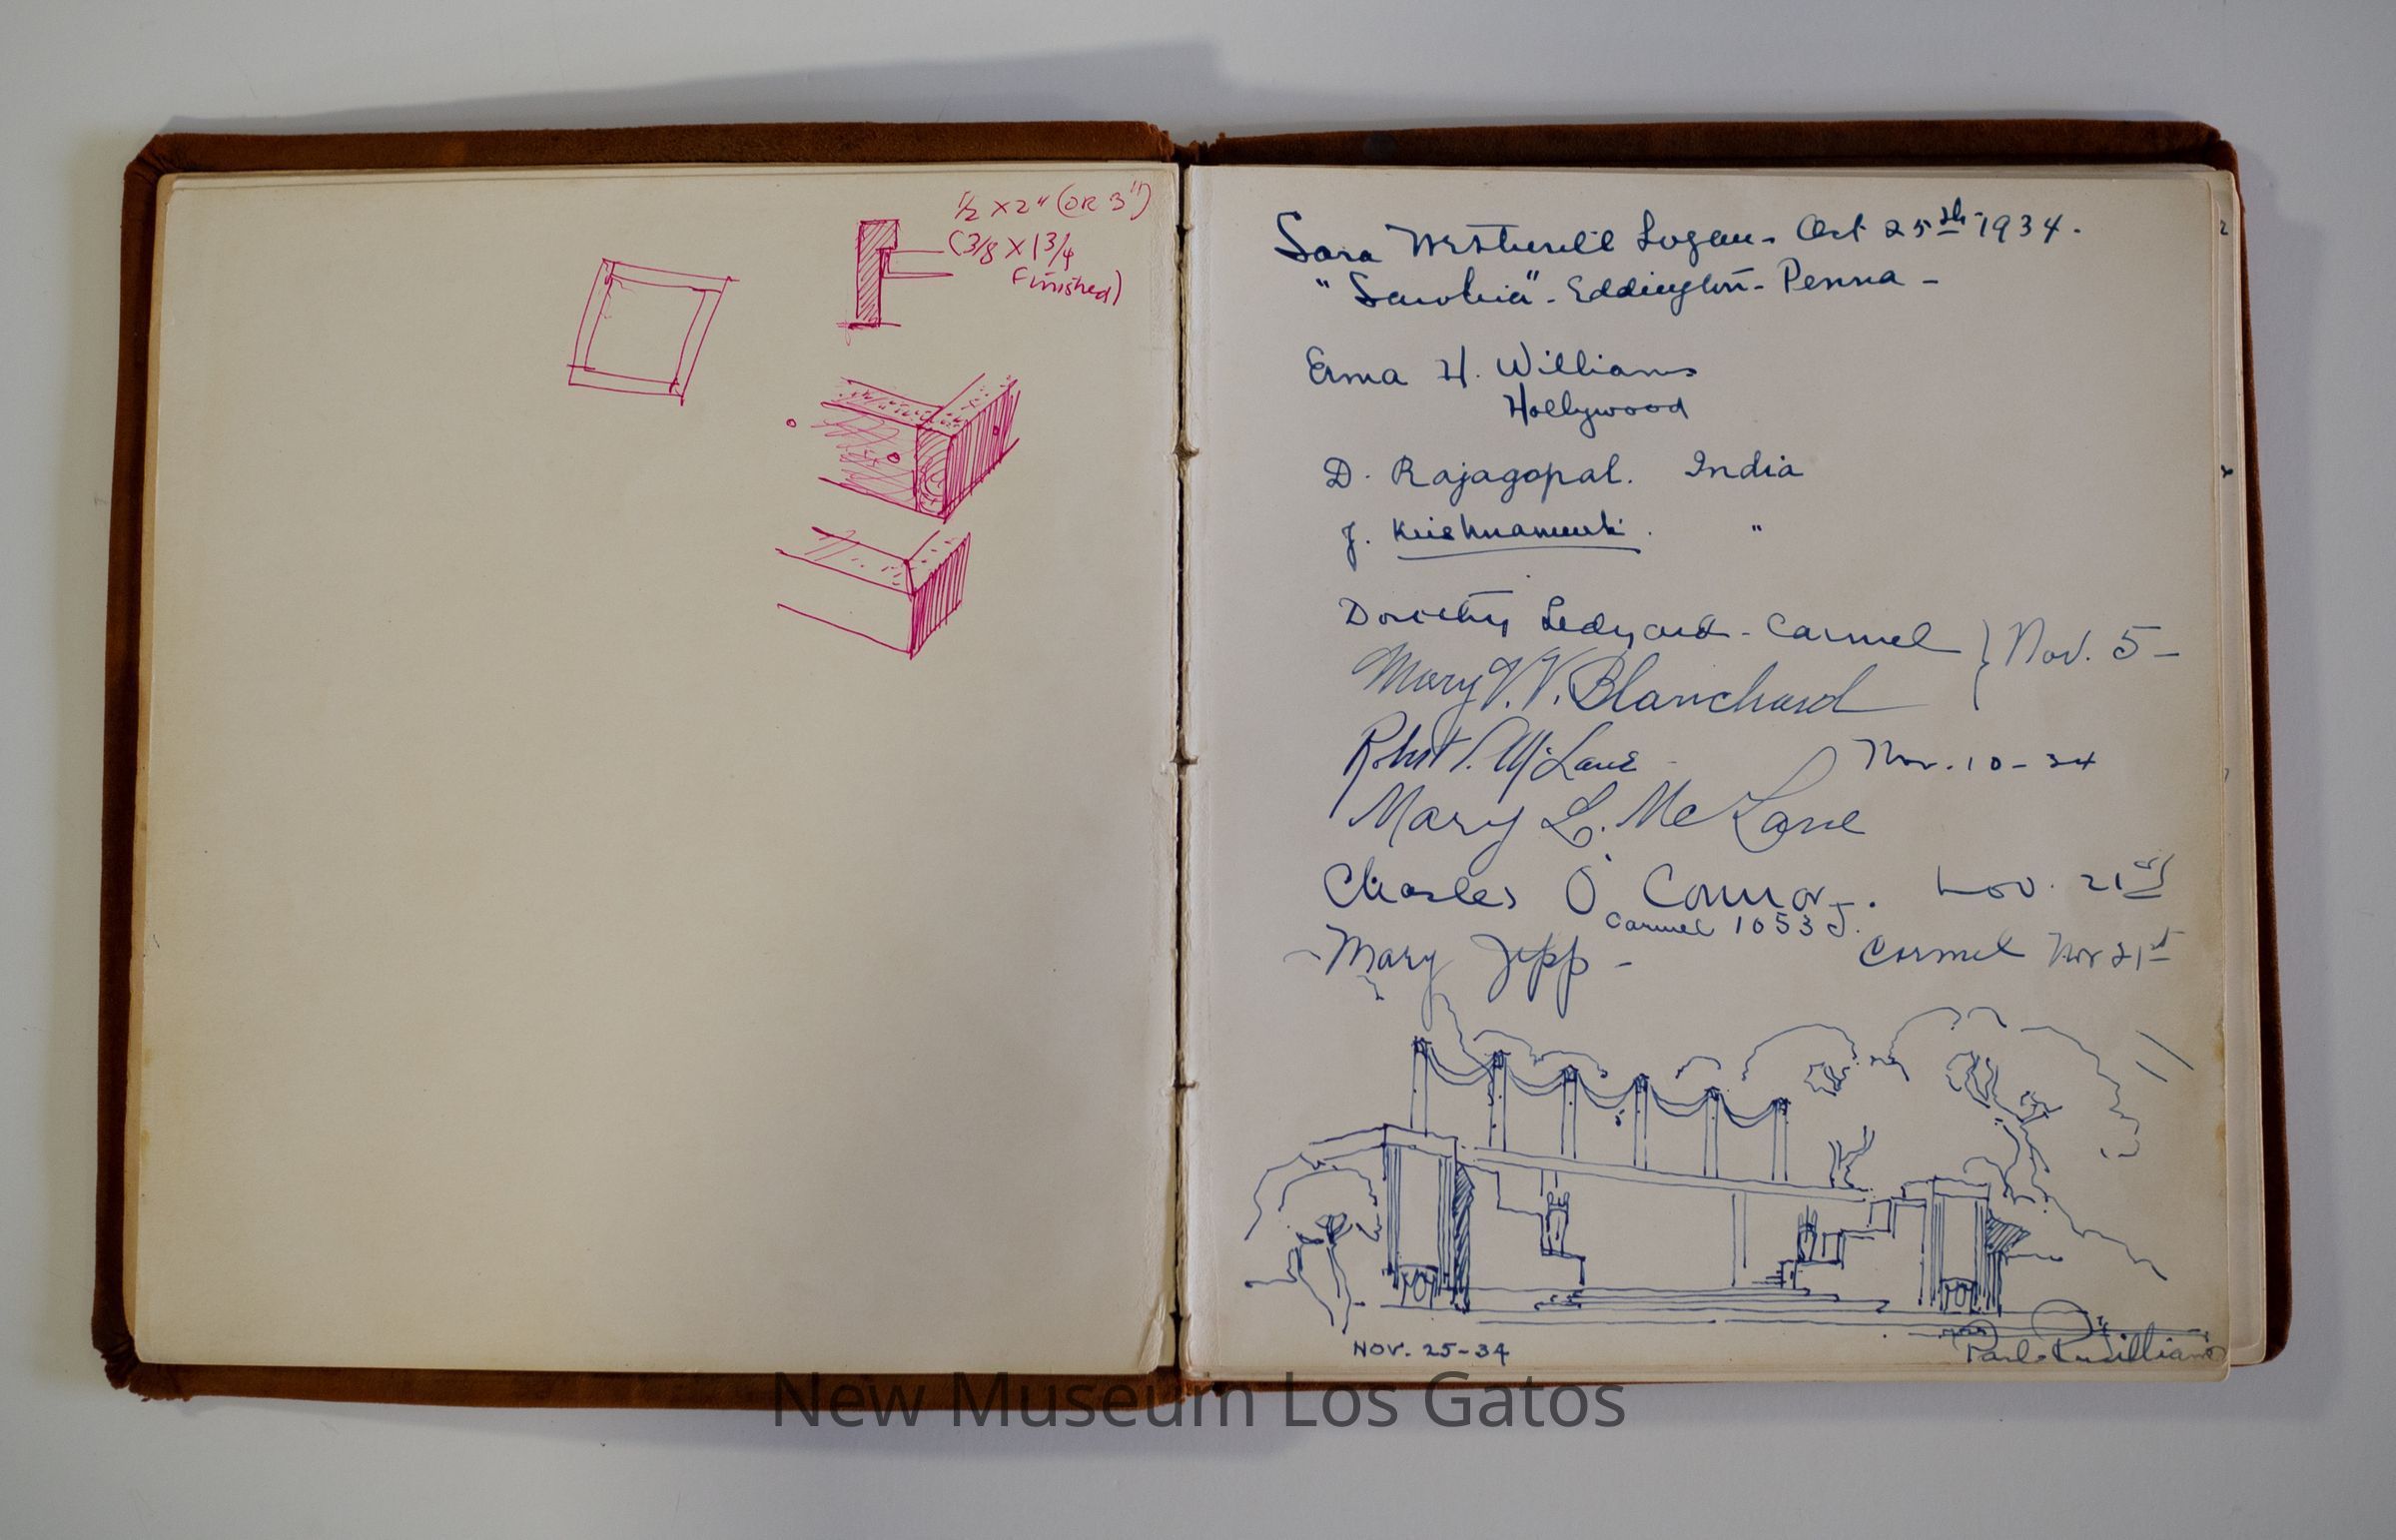 1/2 X 2" (OR 3")
(3/8 X 1 3/4
Finished)
Sara Wetherill Logan - Oct 25th - 1934.
"Sarobia" - Eddington - Penna -
Erma H. Williams
Hollywood
D. Rajagopal. India
J. Krishnamurti. "
Dorothy Ledyard - Carmel } Nov. 5 -
Mary V.V. Blanchard
Robt McLane - Nov. 10 - 34
Mary L. McLane
Charles O'Connor. Nov. 21st
Carmel 1053 J.
Mary Jepp - Carmel Nov 21st
NOV. 25-34
Williams
New Museum Los Gatos